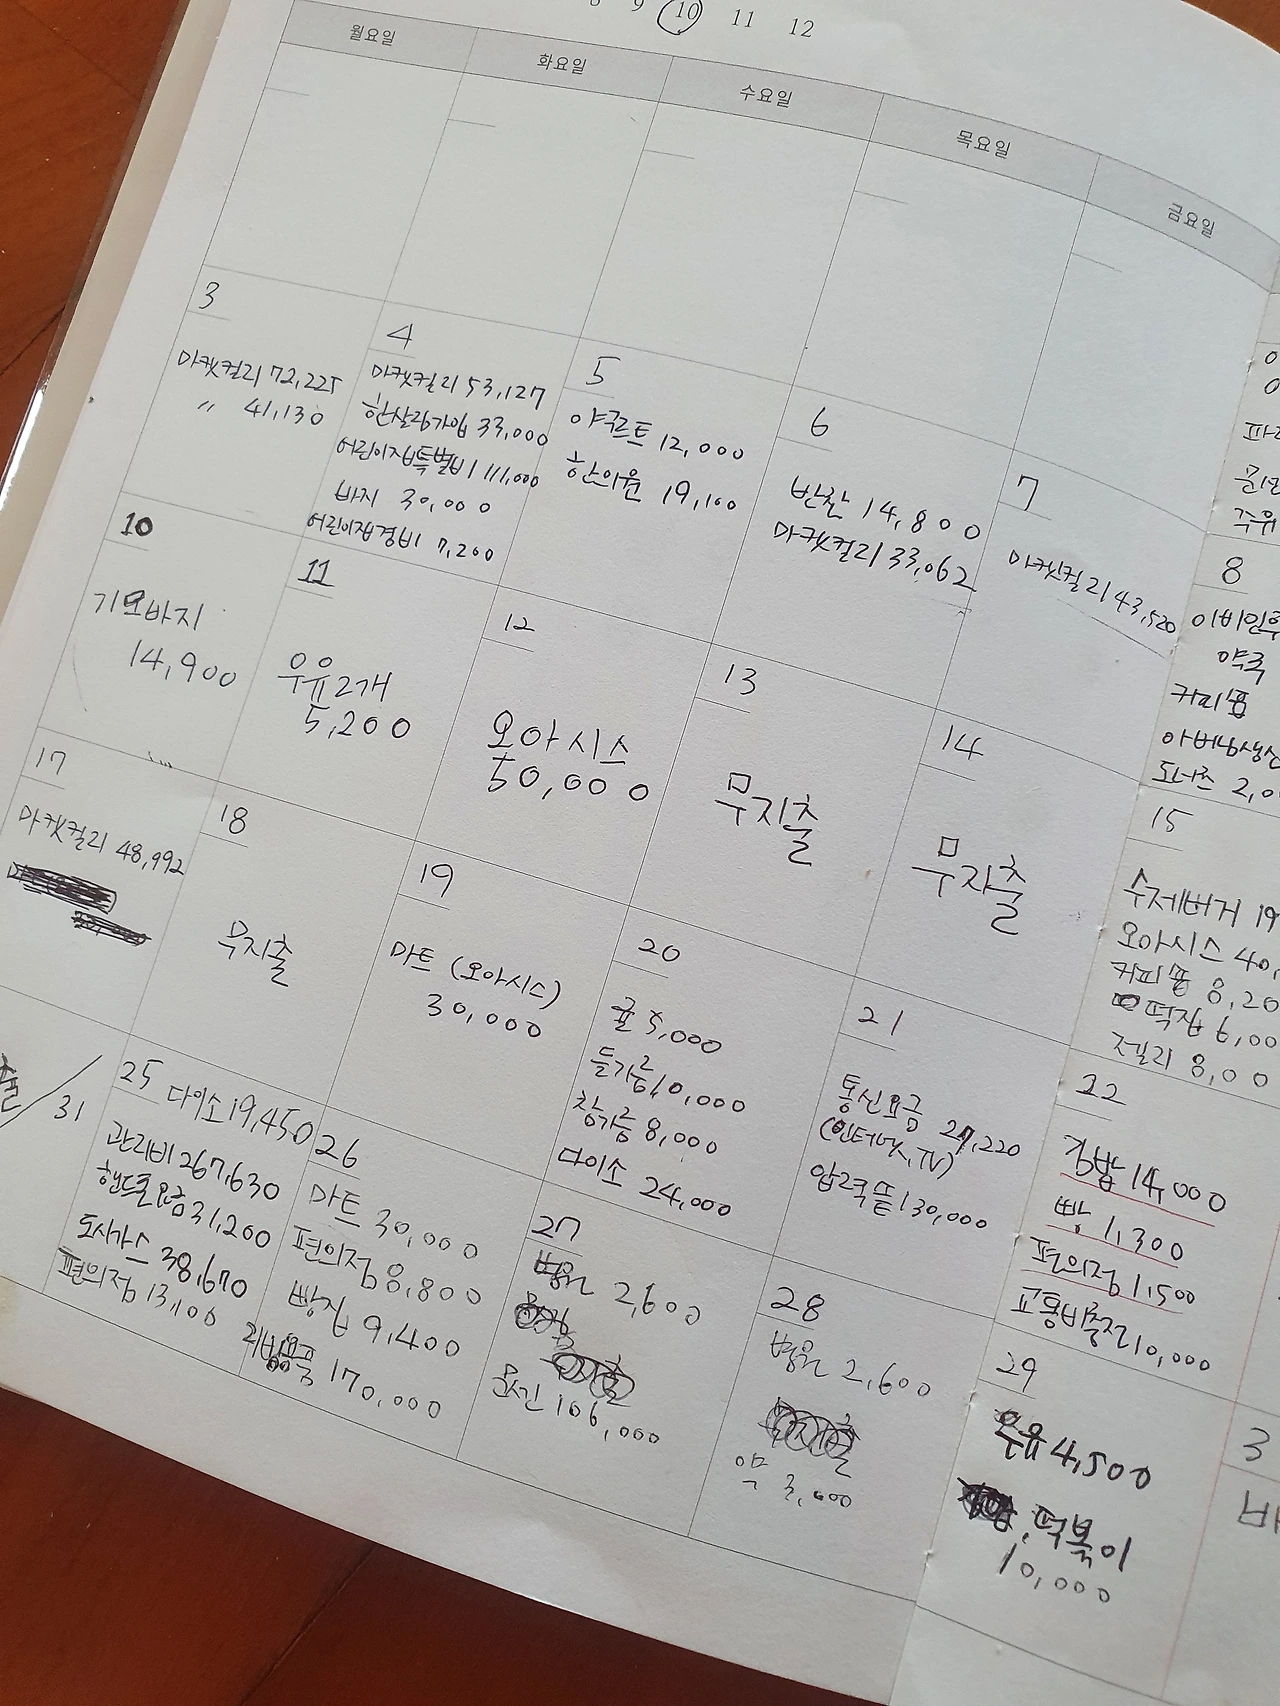 9 10 11 12
월요일 화요일 수요일 목요일 금요일
3
마켓컬리 72,225
〃 41,130
4
마켓컬리 53,127
한살림가입 33,000
어린이집특별비 111,000
바지 30,000
어린이집경비 7,200
5
야쿠르트 12,000
한의원 19,100
6
반찬 14,800
마켓컬리 33,062
7
마켓컬리 43,520
주유
8
이비인후
약국
커피콩
아버님생신
도너츠 2,0
10
기모바지
14,900
11
우유2개
5,200
12
오아시스
50,000
13
무지출
14
무지출
15
수제버거 19
오아시스 40,
커피콩 8,20
떡집 6,00
젤리 8,00
17
마켓컬리 48,992
18
무지출
19
마트 (오아시스)
30,000
20
귤 5,000
들기름 10,000
참기름 8,000
다이소 24,000
21
통신요금 27,220
(인터넷, TV)
압력솥 130,000
22
김밥 14,000
빵 1,300
편의점 1,500
교통비충전 10,000
31
25 다이소 19,450
관리비 267,630
핸드폰요금 31,200
도시가스 38,670
편의점 13,100
26
마트 30,000
편의점 8,800
빵집 9,400
170,000
27
병원 2,600
106,000
28
병원 2,600
약 3,000
29
우유 4,500
떡볶이
10,000
3